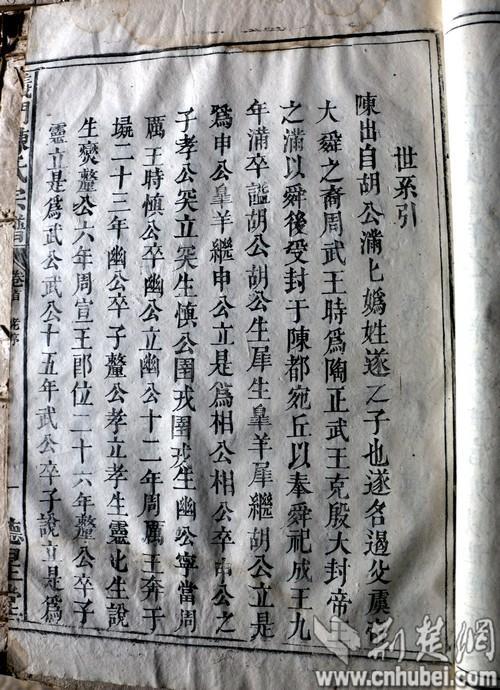 世系引
陳出自胡公滿乜媯姓遂之子也遂名遏父虞
大舜之裔周武王時爲陶正武王克殷大封帝
之滿以舜後受封于陳都宛丘以奉舜祀成王九
年滿卒諡胡公胡公生犀生臯羊犀繼胡公立是
爲申公臯羊繼申公立是爲相公相公卒申公之
子孝公突立突生慎公圉戎圉戎生幽公寧當周
厲王時慎公卒幽公立幽公十二年周厲王奔于
二十三年幽公卒子釐公孝立孝生靈乜生說
生爕釐公六年周宣王即位二十六年釐公卒子
靈立是爲武公武公十五年武公卒子說立是爲
義門陳氏宗譜 卷首 老序 一 德星堂
荊楚網
www.cnhubei.com